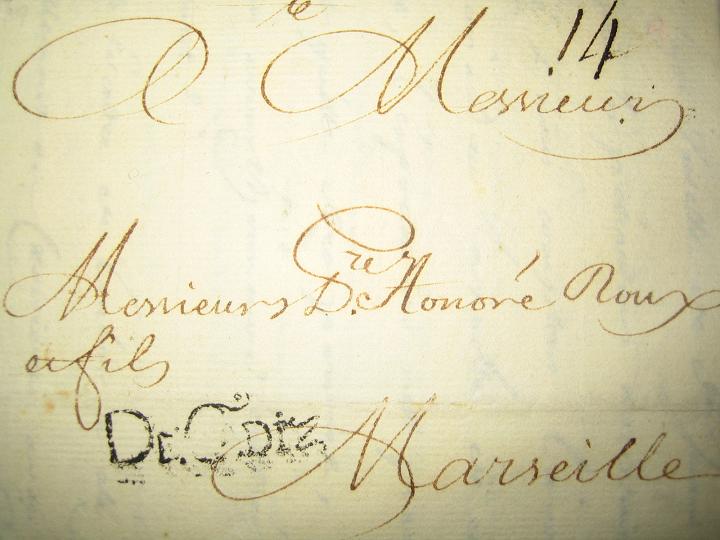 A Messieurs 14
Messieurs Honoré Roux
et fils
De Cadiz
Marseille